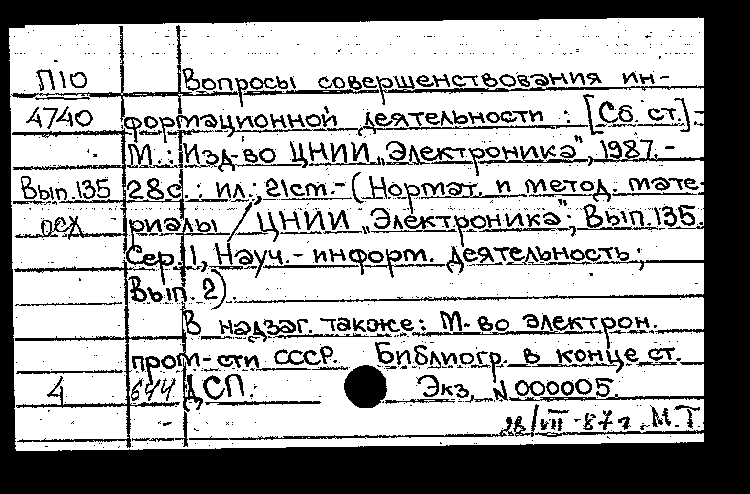 П10 Вопросы совершенствования ин-
4740 формационной деятельности : [Сб. ст.]. -
М. : Изд-во ЦНИИ „Электроника", 1987. -
Вып. 135 28с. : ил.; 21см. - (Нормат. и метод. мате-
осх риалы / ЦНИИ „Электроника"; Вып. 135.
Сер. 1, Науч. - информ. деятельность ;
Вып. 2).
В надзаг. также: М-во электрон.
пром-сти СССР. Библиогр. в конце ст.
4 644 ДСП. Экз. N 000005.
/VII -87г. М.Т.